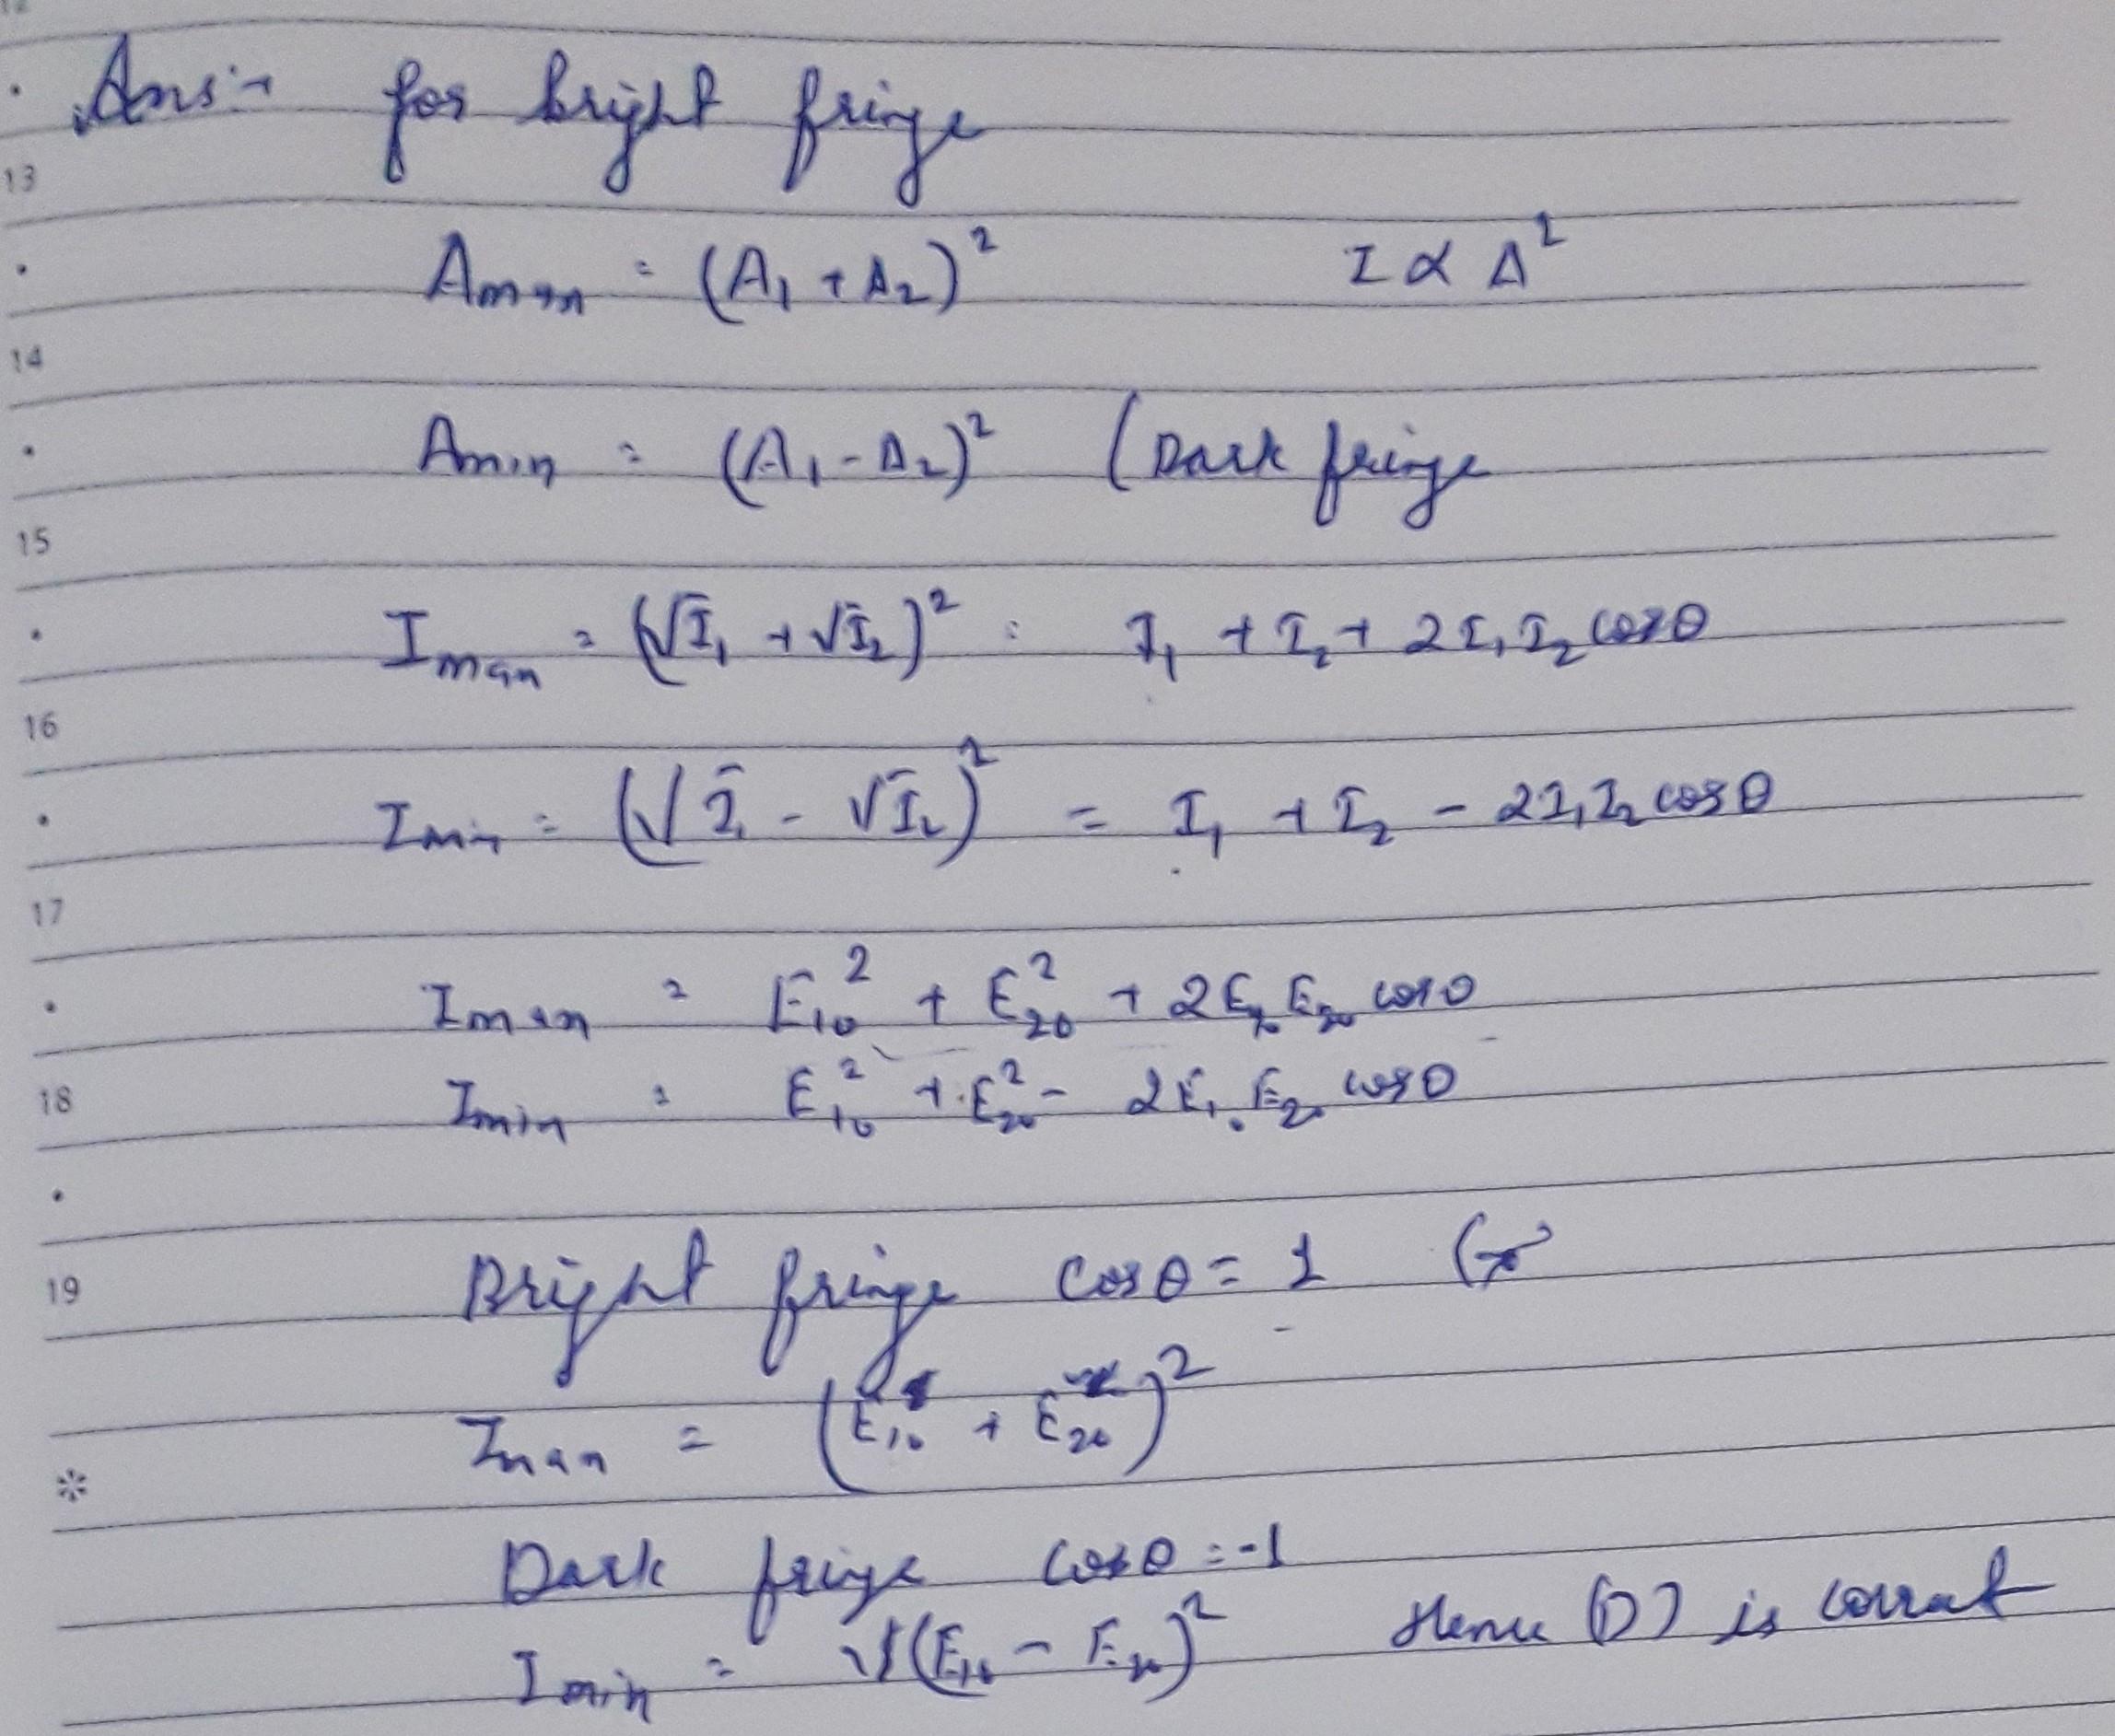 12
Ans:- for bright fringe
13
Amax = (A₁ + A₂)² I ∝ A²
14
Amin = (A₁ - A₂)² (Dark fringe
15
Imax = (√I₁ + √I₂)² = I₁ + I₂ + 2I₁I₂ cosθ
16
Imin = (√I₁ - √I₂)² = I₁ + I₂ - 2I₁I₂ cosθ
17
Imax = E₁₀² + E₂₀² + 2E₁₀E₂₀ cosθ
18
Imin = E₁₀² + E₂₀² - 2E₁₀E₂₀ cosθ
19
Bright fringe cosθ = 1
Imax = (E₁₀ + E₂₀)²
Dark fringe cosθ = -1
Imin = (E₁₀ - E₂₀)² Hence (D) is correct